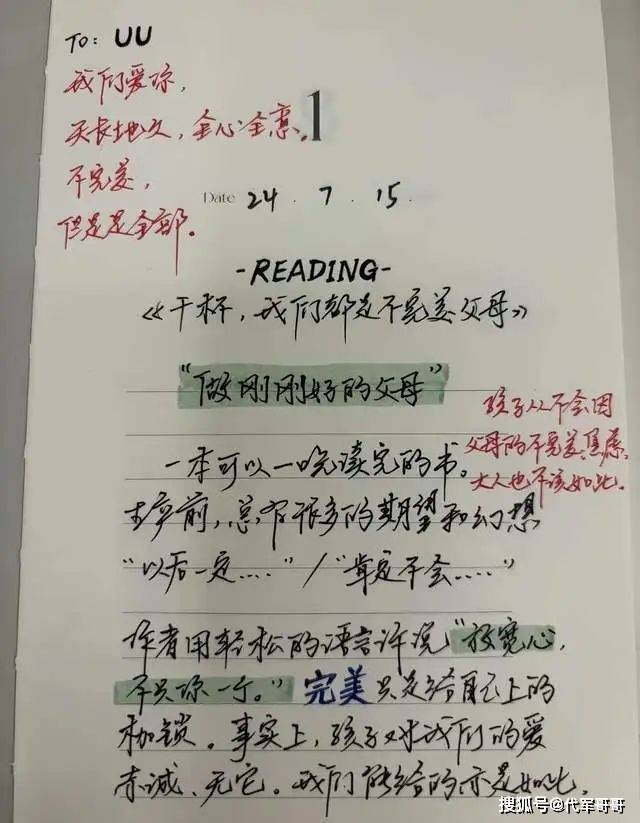 To: UU
我们爱你，
天长地久，全心全意。
不完美，
但是是全部。
1
Date 24 . 7 . 15 .
-READING-
《干杯，我们都是不完美父母》
“做刚刚好的父母”
孩子从不会因
父母的不完美焦虑。
大人也不该如此。
一本可以一晚读完的书。
生产前，总有很多的期望和幻想
“以后一定....” / “肯定不会.....”
作者用轻松的语言诉说“放宽心，
不只你一个。” 完美只是给自己上的
枷锁。事实上，孩子对我们的爱
赤诚、无它。我们能给的亦是如此。
搜狐号@代军哥哥